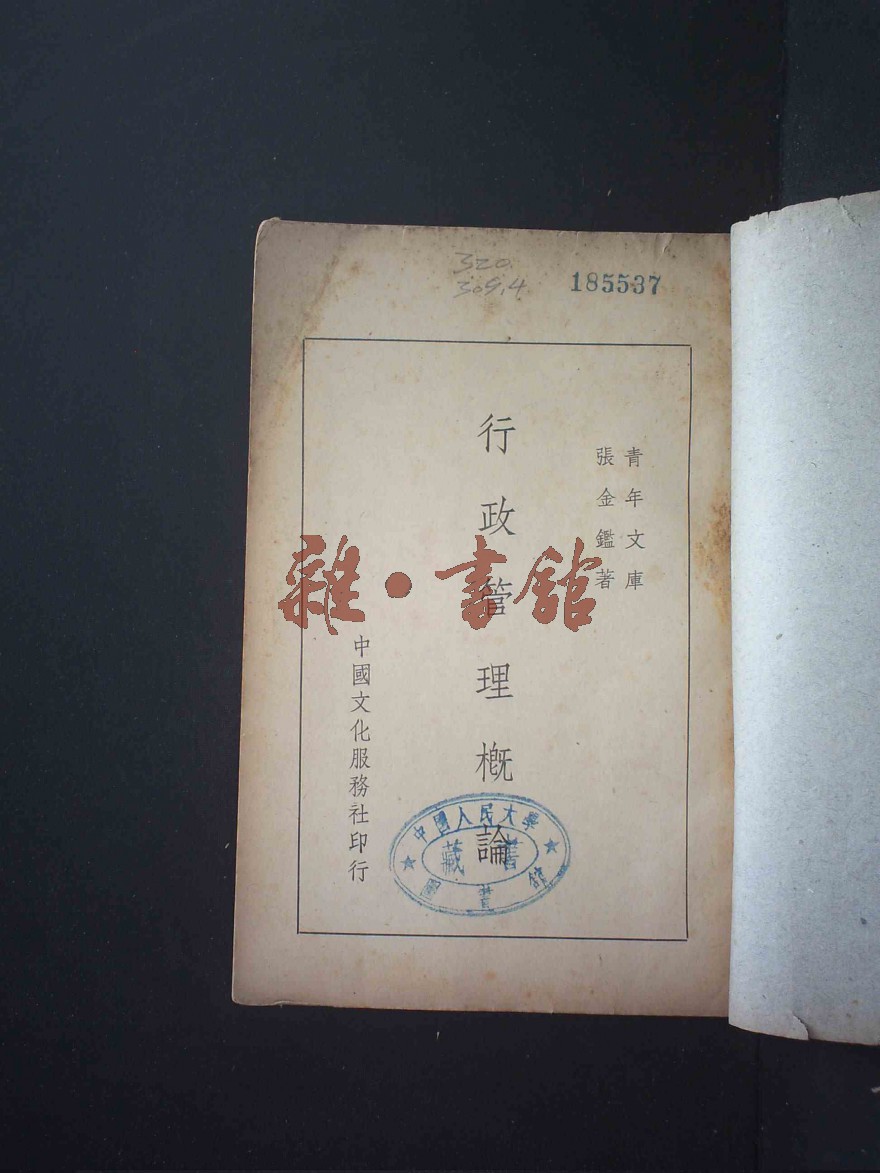 320.
309.4
185537
青年文庫
張金鑑著
行政管理槪論
中國文化服務社印行
雜·書館
中國人民大學
藏書
圖書館